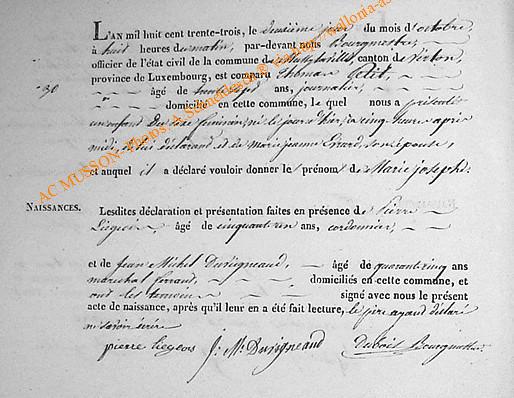 L'AN mil huit cent trente-trois, le deuxième jour du mois d'octobre,
à huit heures du matin, par-devant nous Bourgmestre,
officier de l'état civil de la commune de canton de Virton,
30
province de Luxembourg, est comparu Thomas Petit,
âgé de ans, journalier,
domicilié en cette commune, le quel nous a présenté
un enfant du sexe féminin, né le jour d'hier, à cinq heures après
midi, de lui déclarant et de Marie jeanne Evrard, son épouse,
et auquel il a déclaré vouloir donner le prénom de Marie joseph.
NAISSANCES.
Lesdites déclaration et présentation faites en présence de Pierre
Liégeois, âgé de cinquante un ans, cordonnier,
et de Jean Michel Duvigneaud, âgé de quarante cinq ans
marechal ferrand, domiciliés en cette commune, et
ont les temoins signé avec nous le présent
acte de naissance, après qu'il leur en a été fait lecture, le père ayant déclaré
ne savoir écrire
pierre liegeois J: M: Duvigneaud Dubois Bourgmestre
AC MUSSON-Photos: A. Schneidesch